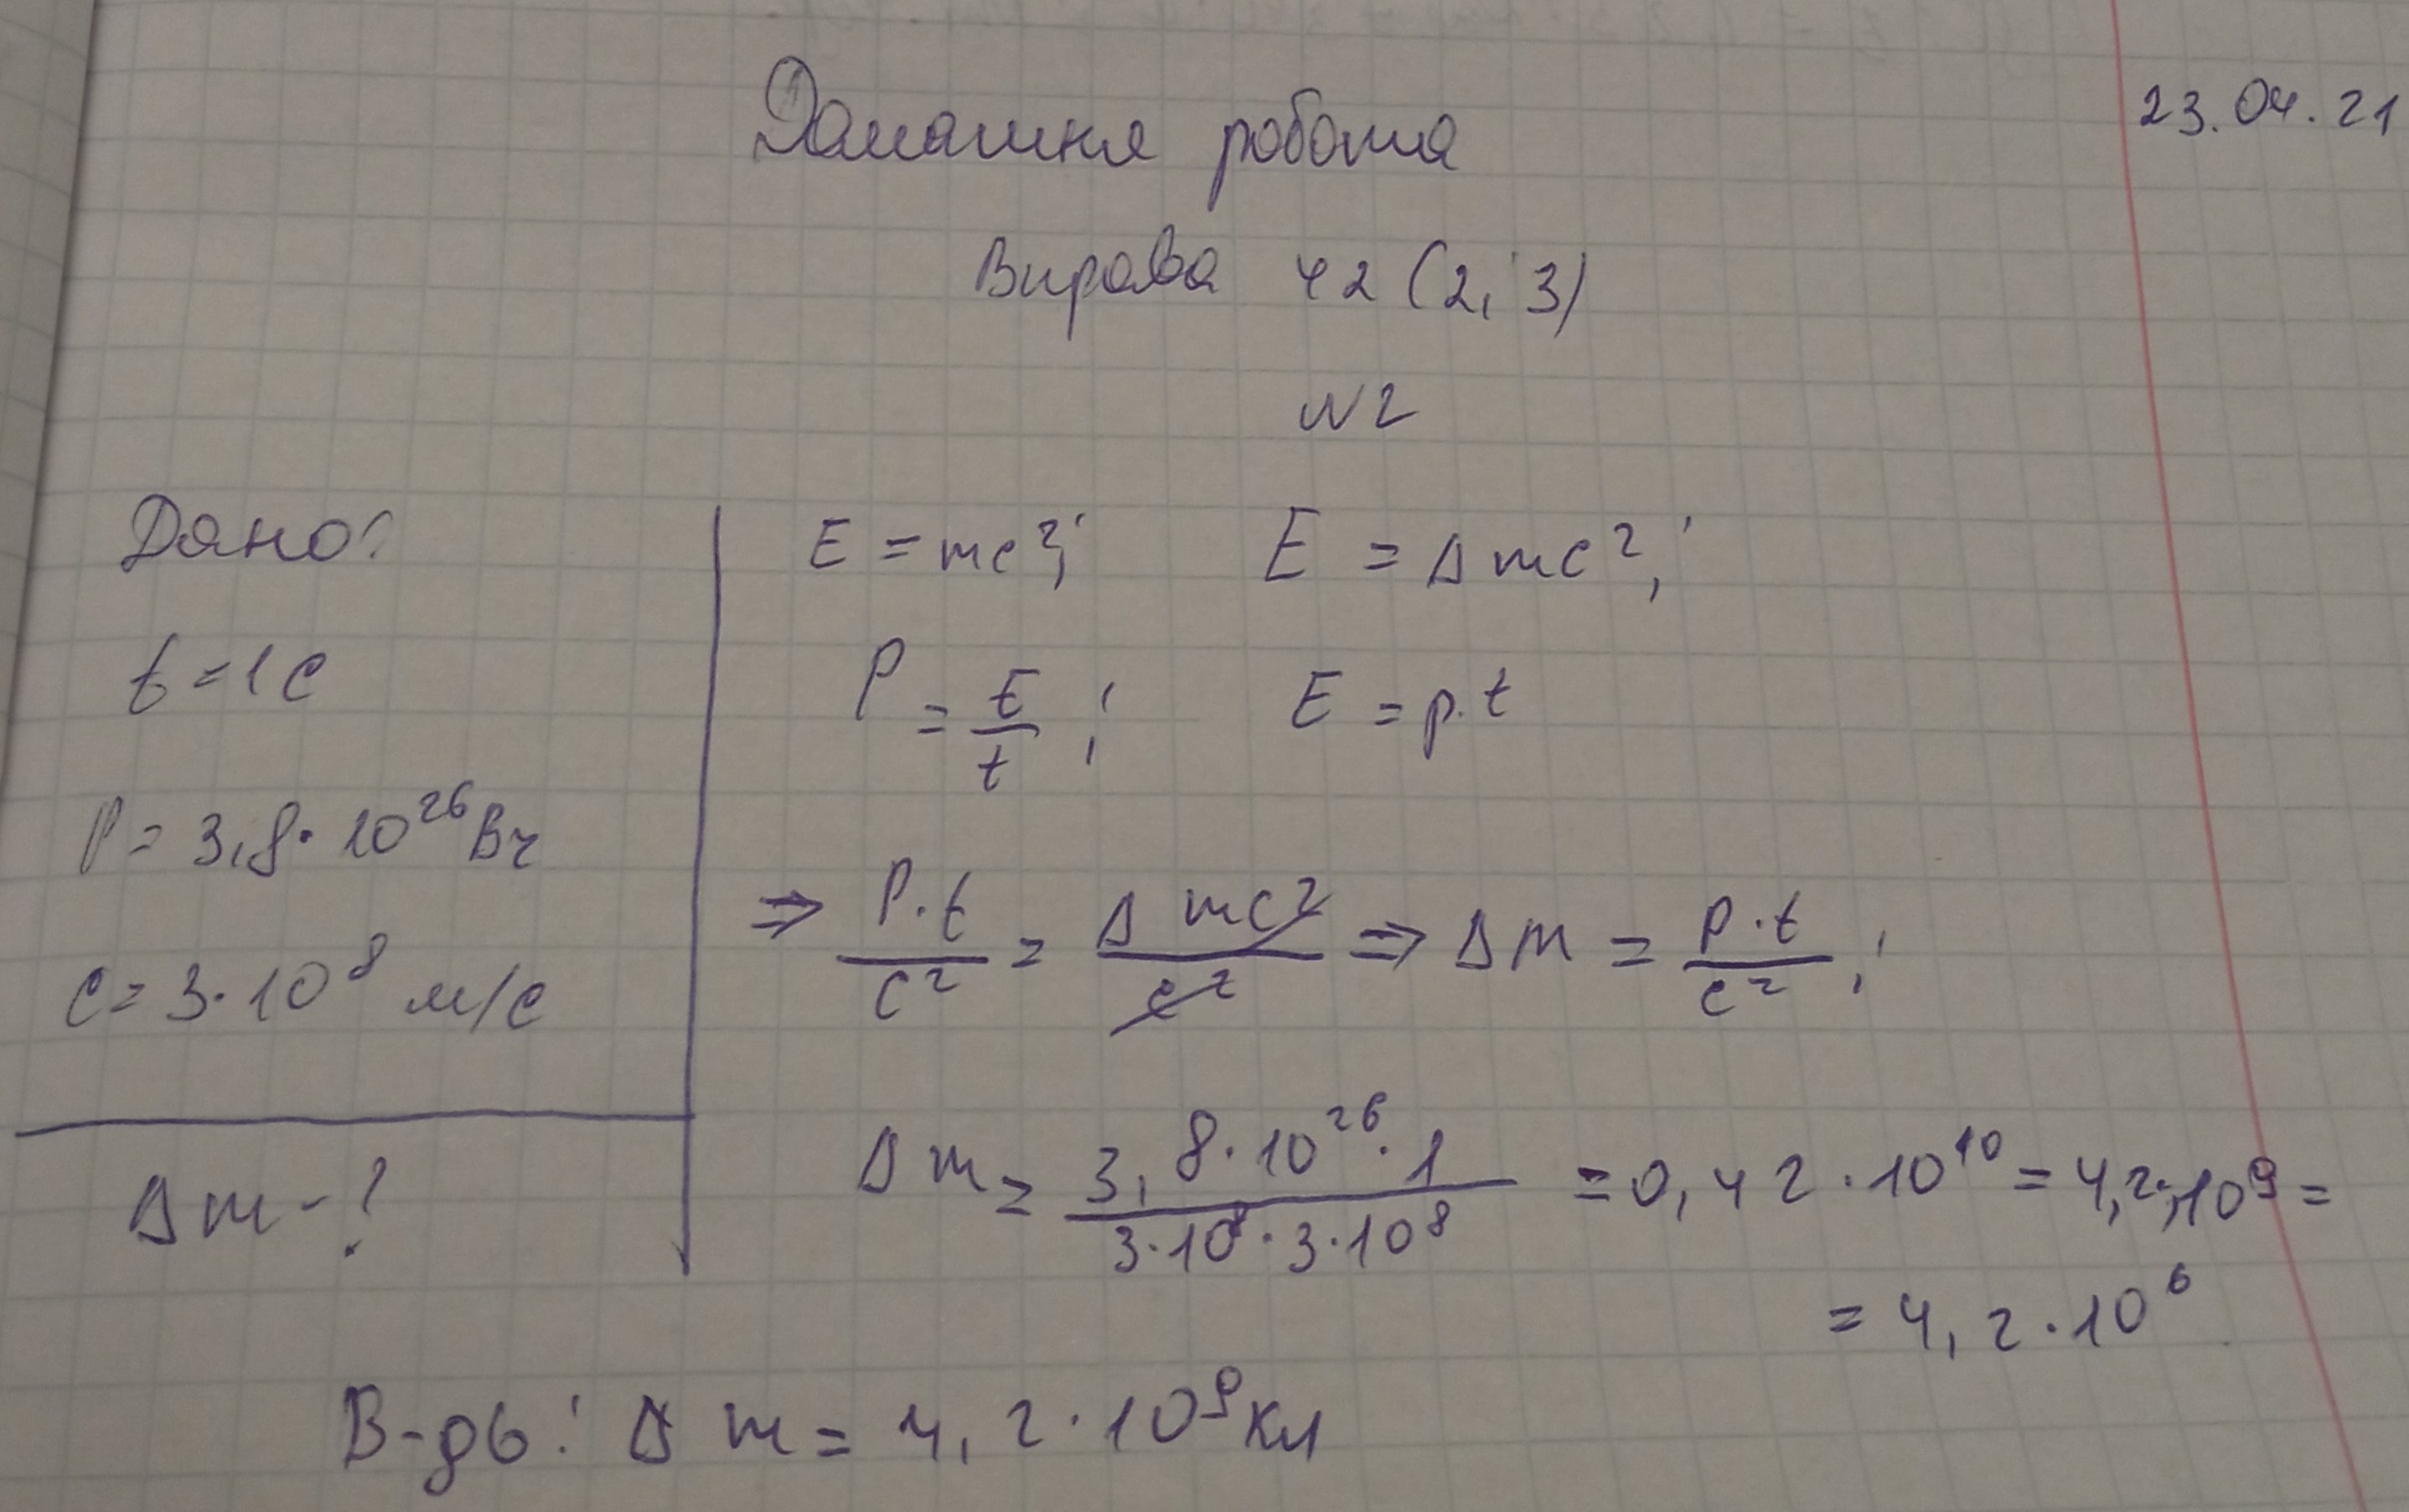 23.04.21
Домашня робота
Вправа 42 (2; 3)
№2
Дано:
t = 1 c
P = 3,8 · 10²⁶ Вт
c = 3 · 10⁸ м/с
Δm - ?
E = mc²; E = Δmc²;
P = E/t; E = p·t
⇒ P·t/c² = Δmc²/c² ⇒ Δm = p·t/c²;
Δm = 3,8·10²⁶·1/3·10⁸·3·10⁸ = 0,42·10¹⁰ = 4,2·10⁹ =
= 4,2·10⁶
В-дь: Δm = 4,2·10⁹ кг